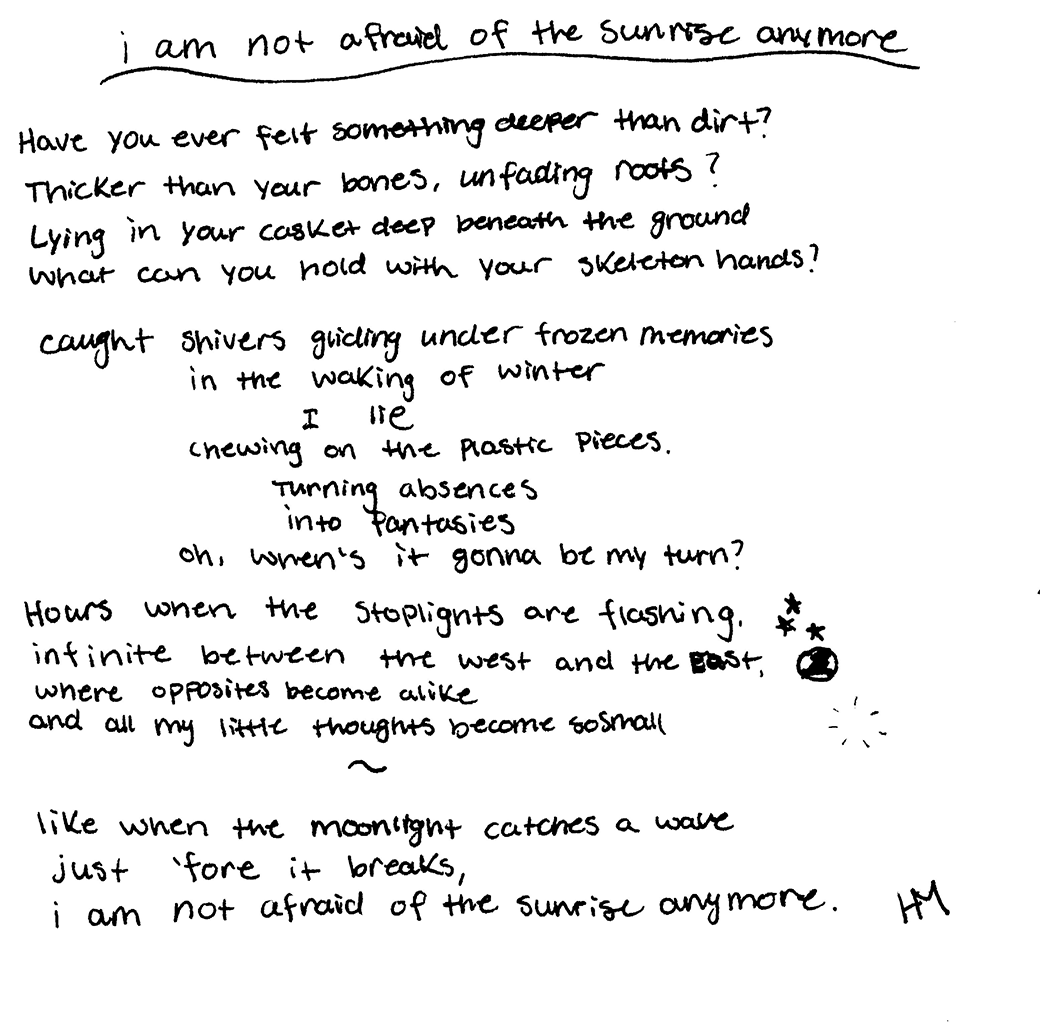 i am not afraid of the sunrise anymore
Have you ever felt something deeper than dirt?
Thicker than your bones, unfading roots?
Lying in your casket deep beneath the ground
What can you hold with your skeleton hands?
caught shivers gliding under frozen memories
in the waking of winter
I lie
chewing on the plastic pieces.
Turning absences
into fantasies
oh, when's it gonna be my turn?
Hours when the stoplights are flashing.
infinite between the west and the East,
where opposites become alike
and all my little thoughts become so small
~
like when the moonlight catches a wave
just 'fore it breaks,
i am not afraid of the sunrise anymore.
HM